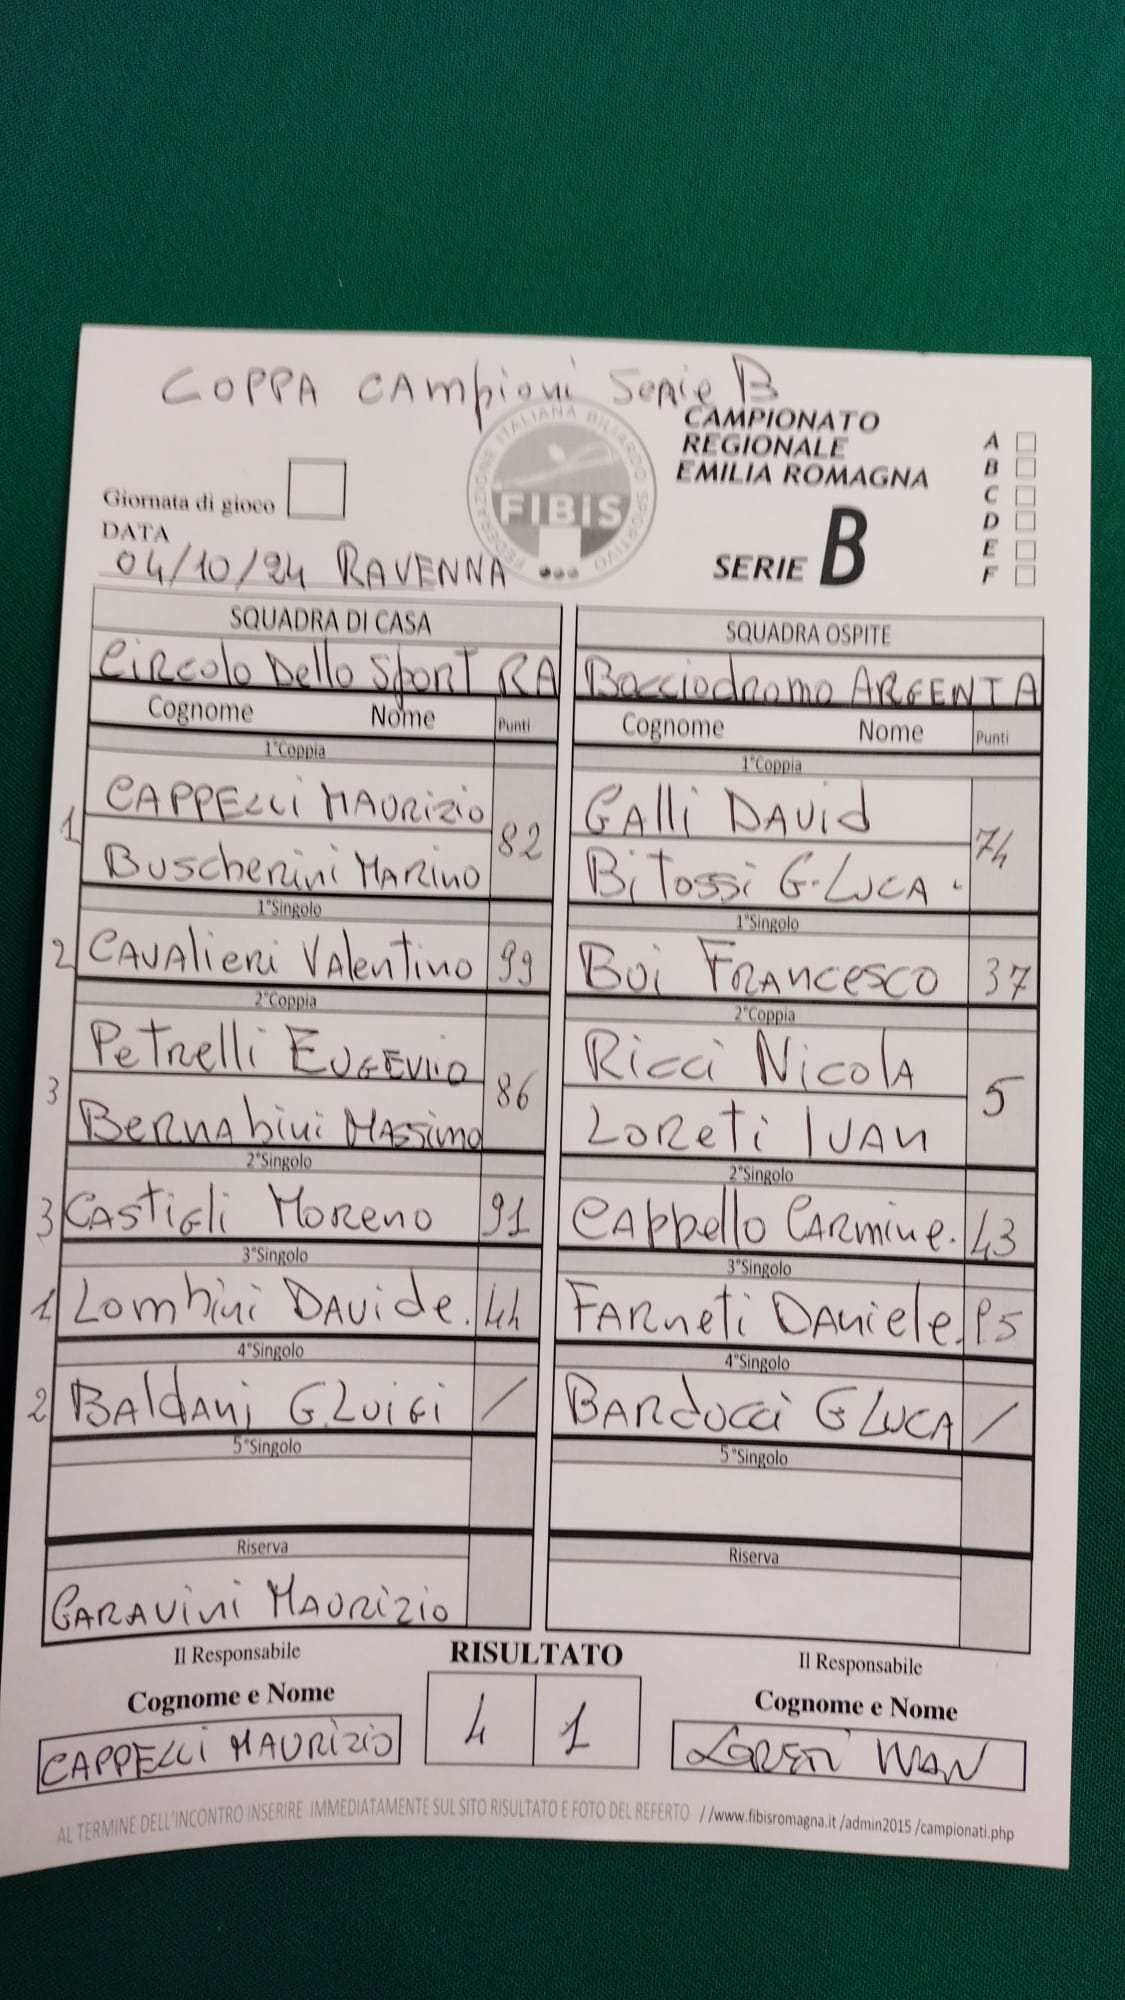 COPPA CAMPIONI SERIE B
CAMPIONATO
REGIONALE
EMILIA ROMAGNA
SERIE B
A
B
C
D
E
F
FEDERAZIONE ITALIANA BILIARDO SPORTIVO
FIBiS
Giornata di gioco
DATA
04/10/24 RAVENNA
SQUADRA DI CASA SQUADRA OSPITE
Circolo Dello Sport RA Bocciodromo ARGENTA
Cognome Nome Punti Cognome Nome Punti
1°Coppia 1°Coppia
1 CAPPELLI MAURIZIO 82 GALLI DAVID 74
BUSCHERINI MARINO BITOSSI G.LUCA
1°Singolo 1°Singolo
2 CAVALIERI VALENTINO 99 BOI FRANCESCO 37
2°Coppia 2°Coppia
3 PETRELLI EUGENIO 86 RICCI NICOLA 5
BERNABINI MASSIMO LORETI IVAN
2°Singolo 2°Singolo
3 CASTIGLI MORENO 91 CAPPELLO CARMINE. 43
3°Singolo 3°Singolo
1 LOMBINI DAVIDE. 44 FARNETI DANIELE.
4°Singolo 4°Singolo
2 BALDANI G.LUIGI / BARDUCCI G LUCA /
5°Singolo 5°Singolo
Riserva Riserva
GARAVINI MAURIZIO
Il Responsabile RISULTATO Il Responsabile
Cognome e Nome 4 1 Cognome e Nome
CAPPELLI MAURIZIO LORETI IVAN
AL TERMINE DELL'INCONTRO INSERIRE IMMEDIATAMENTE SUL SITO RISULTATO E FOTO DEL REFERTO //www.fibisromagna.it /admin2015 /campionati.php